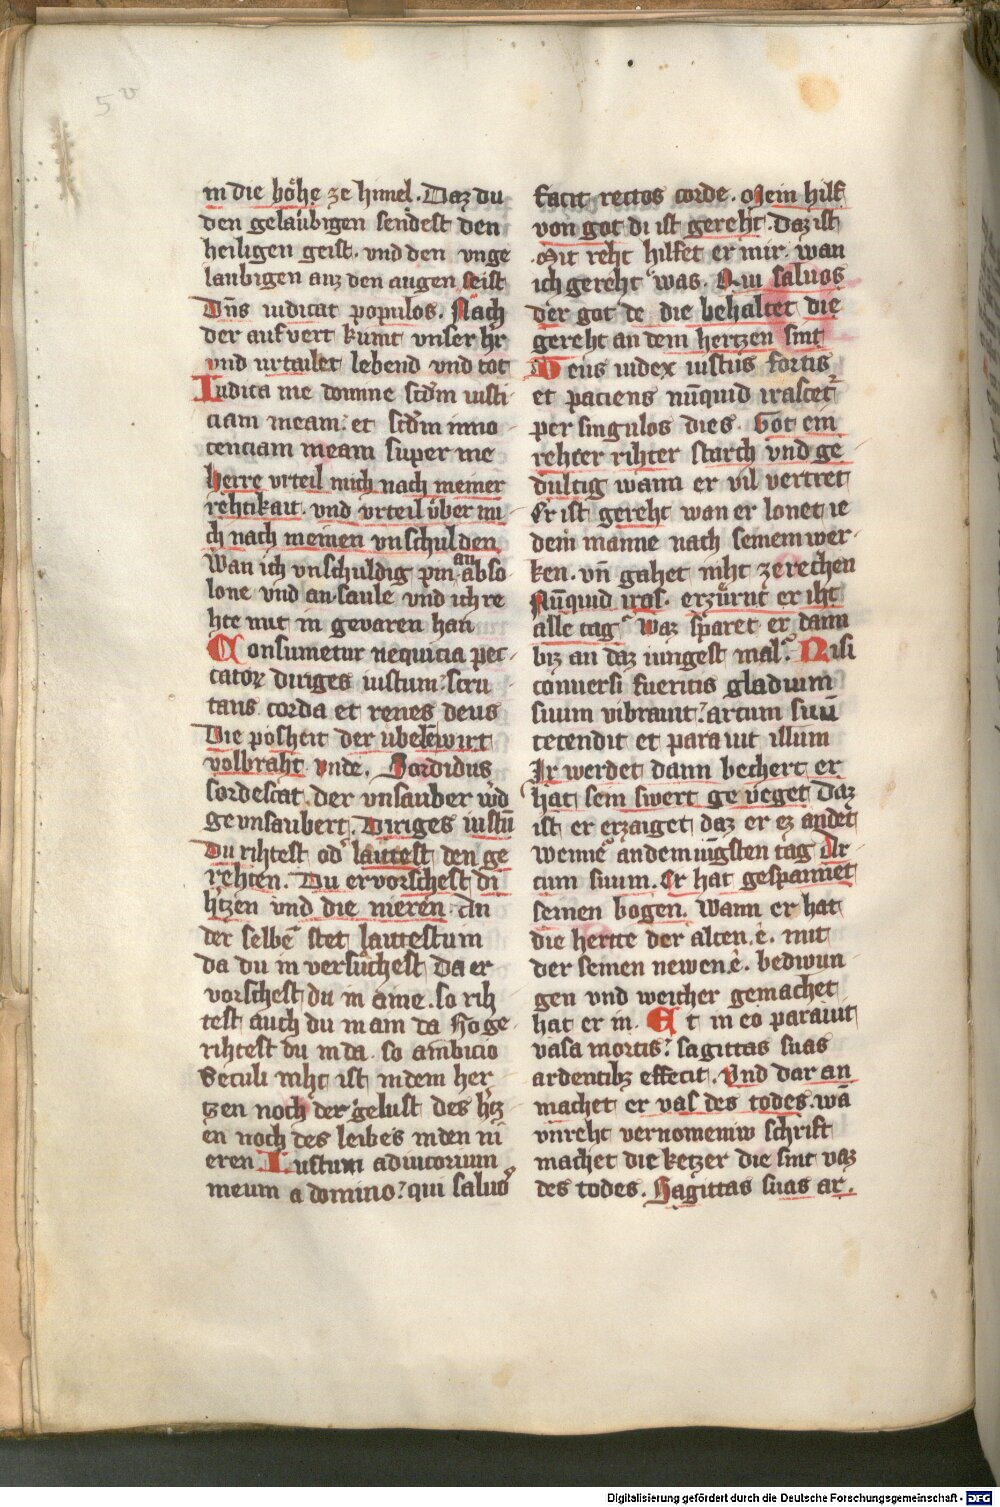 5v
in die höhe ze himel. Daz du
den geläubigen sendest den
heiligen geist. vnd den vnge
laubigen auz den augen seist
Dn̄s iudicat populos. Nach
der aufvert kumt vnser hr̄
vnd vrtailet lebend vnd tot
Iudica me domine scd̄m iusti
ciam meam: et scd̄m inno
cenciam meam super me
Herre vrteil mich nach meiner
rehtikait. vnd vrteil über mi
ch nach meinen vnschulden
Wan ich vnschuldig pin an abso
lone vnd an saule vnd ich re
hte mit in gevaren han
Consumetur nequicia pec
catoꝝ diriges iustum: scru
tans corda et renes deus
Die posheit der übelē wirt
volbraht vnde. Sordidus
sordescat. der vnsauber wd
gevnsaubert. Diriges iustū
Du rihtest od lautest den ge
rehten. Du ervorschest di
htzen vnd die nieren. An
der selbē stet lautestu in
da du in versůchest da er
vorschest du in aine. so rih
test auch du in ain da so ge
rihtest du in da. so ambicio
Seculi niht ist in dem her
tzen noch der gelust des htz
en noch des leibes in den ni
eren Iustum adiutorium
meum a domino: qui saluos
facit rectos corde. Mein hilf
von got di ist gereht. Daz ist
Mit reht hilfet er mir. wan
ich gereht was. Qui saluos
der got de die behaltet die
gereht an dem hertzen sint
Deus iudex iustus fortis
et paciens nūquid irascetr
per singulos dies. Got ein
rehter rihter starch vnd ge
dultig wann er vil vertret
Er ist gereht wan er lonet ie
dem manne nach seinem wer
ken. vn̄ gahet niht ze rechen
Nūquid iras. erzürnt er iht
alle tag waz sparet er dann
biz an daz iungest mal. Nisi
conuersi fueritis gladium
suum vibrauit: arcum suū
tetendit et parauit illum
Ir werdet dann bechert er
hat sein swert ge veget daz
ist er erzaiget daz er ez andet
wenne an dem iūgsten tag Ar
cum suum. Er hat gespannet
seinen bogen. Wann er hat
die herte der alten.ê. mit
der seinen newen.ê. bedwun
gen vnd weicher gemachet
hat er in. Et in eo parauit
vasa mortis: sagittas suas
ardentibꝫ effecit. Vnd dar an
machet er vas des todes. wā
vnreht vernomeniw schrift
machet die ketzer die sint vaz
des todes. Sagittas suas ar.
Digitalisierung gefördert durch die Deutsche Forschungsgemeinschaft - DFG